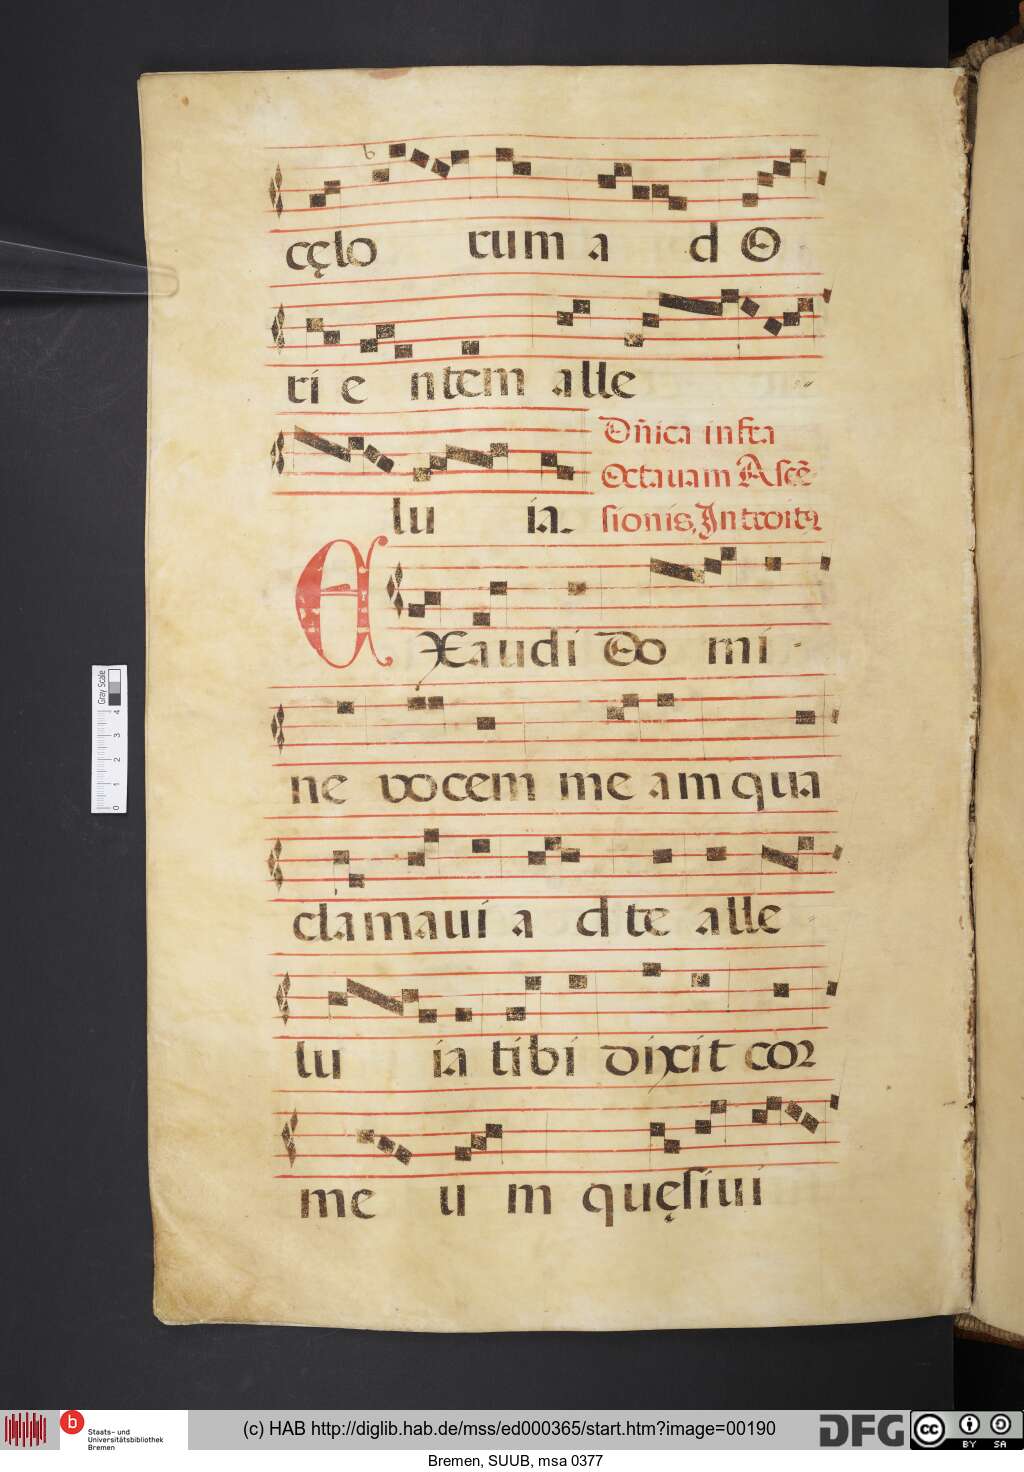 b
cęlo rum a d O
ri e ntem alle
lu ia.
Dn̄ica infra
Octauam Ascē
sionis, Introitꝯ
EXaudi Do mi -
ne vocem me am qua
clamaui a d te alle
lu ia tibi dixit cor
me u m quęsiui
Gray Scale
0 1 2 3 4
Staats- und
Universitätsbibliothek
Bremen
(c) HAB http://diglib.hab.de/mss/ed000365/start.htm?image=00190
DFG
cc BY SA
Bremen, SUUB, msa 0377